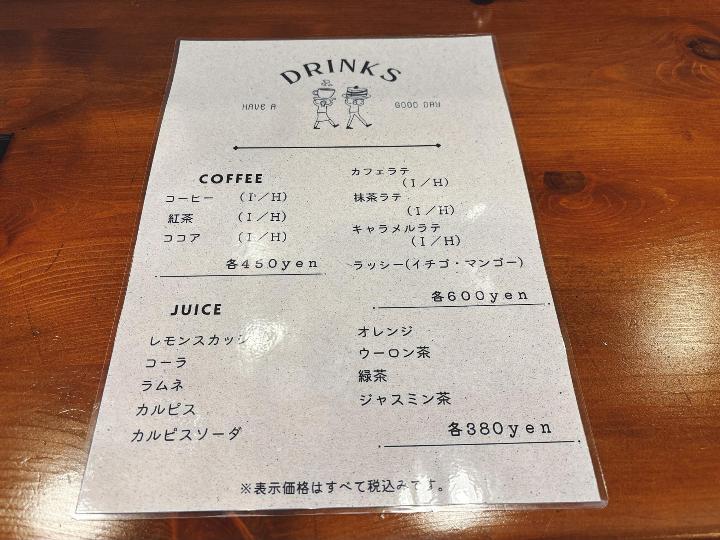 DRINKS
HAVE A
GOOD DAY
COFFEE
コーヒー (I/H)
紅茶 (I/H)
ココア (I/H)
各450yen
カフェラテ
(I/H)
抹茶ラテ
(I/H)
キャラメルラテ
(I/H)
ラッシー(イチゴ・マンゴー)
各600yen
JUICE
レモンスカッシュ
コーラ
ラムネ
カルピス
カルピスソーダ
オレンジ
ウーロン茶
緑茶
ジャスミン茶
各380yen
※表示価格はすべて税込みです。